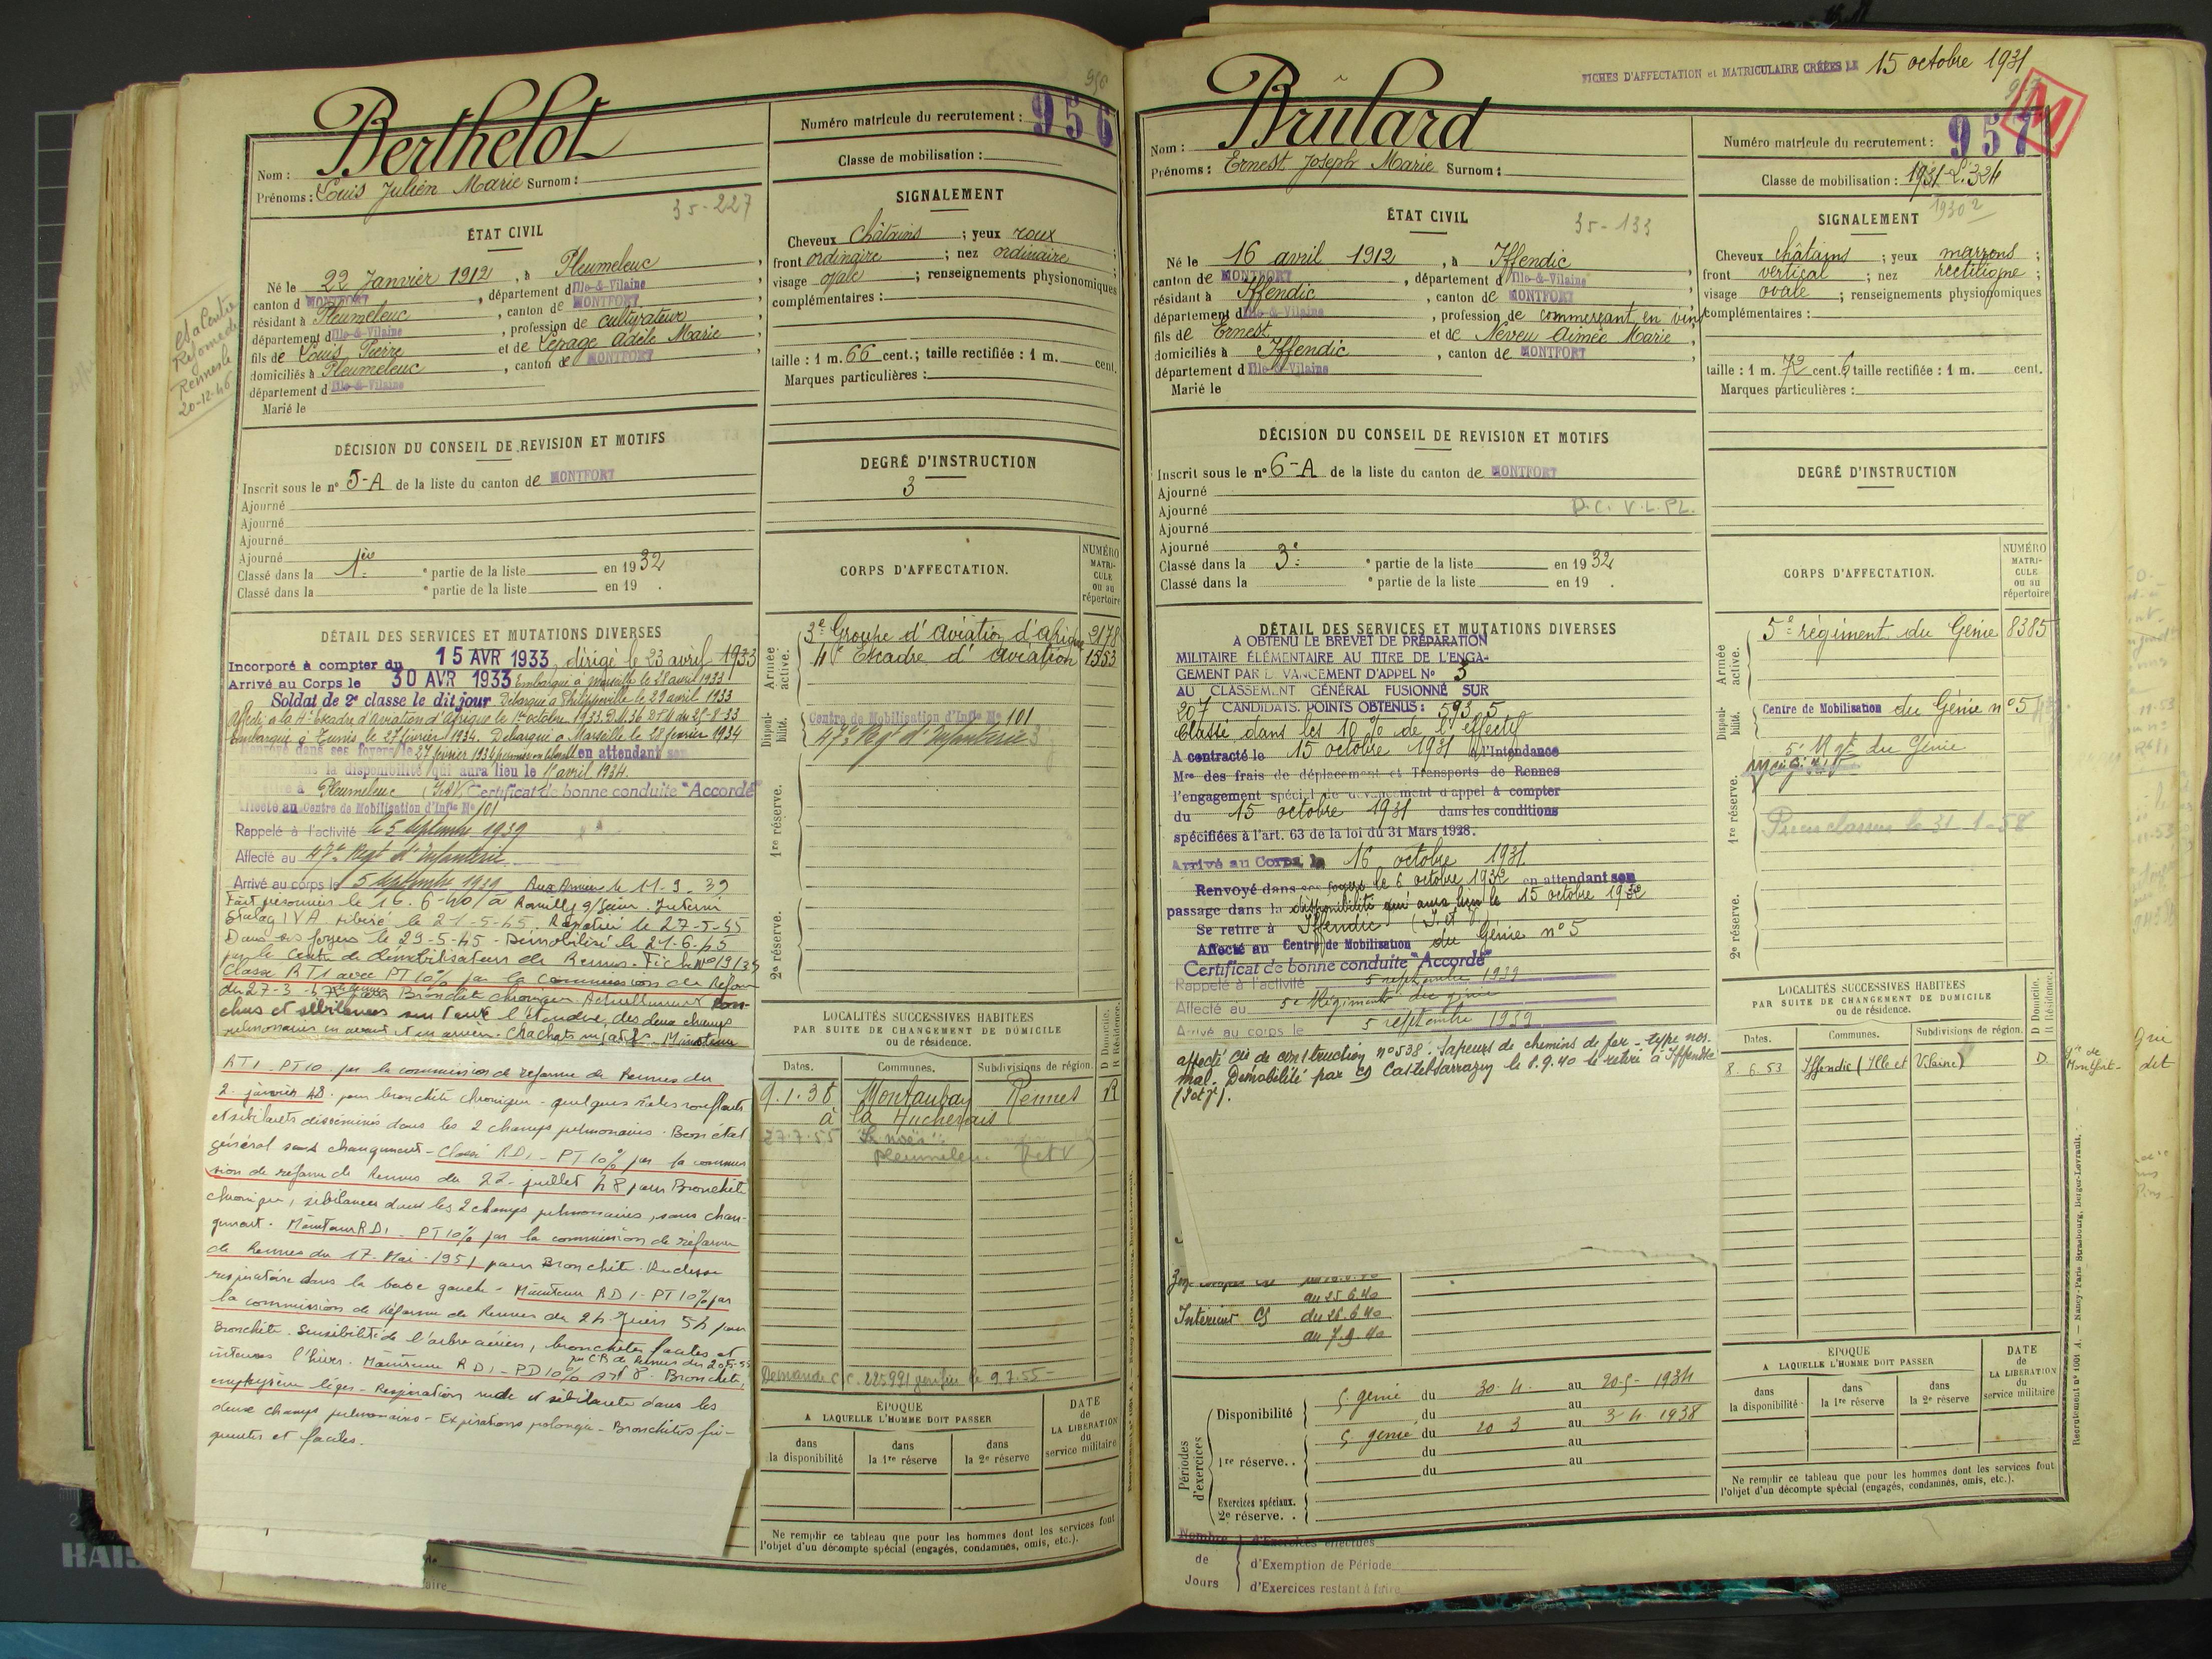 956
Berthelot
Nom :
Prénoms : Louis Julien Marie Surnom :
35-227
ÉTAT CIVIL
Né le 22 Janvier 1912, à Pleumeleuc,
canton d MONTFORT, département d'Ille-&-Vilaine
résidant à Pleumeleuc, canton de MONTFORT
département d'Ille-&-Vilaine, profession de cultivateur
fils de Louis Pierre et de Lepage Adèle Marie,
domiciliés à Pleumeleuc, canton de MONTFORT
département d'Ille-&-Vilaine
Marié le
Réforme de
Rennes le
20-12-46
DÉCISION DU CONSEIL DE REVISION ET MOTIFS
Inscrit sous le n° 5-A de la liste du canton de MONTFORT
Ajourné
Ajourné
Ajourné
Ajourné
Classé dans la 1ère ° partie de la liste en 1932
Classé dans la ° partie de la liste en 19 .
DÉTAIL DES SERVICES ET MUTATIONS DIVERSES
Incorporé à compter du 15 AVR 1933, dirigé le 23 avril 1933
Arrivé au Corps le 30 AVR 1933 Embarqué à Marseille le 28 avril 1933
Soldat de 2e classe le dit jour Débarqué à Philippeville le 29 avril 1933
Affecté à la 4e Escadre d'aviation d'Afrique le 1er octobre 1933. D.M. 36 du 25-8-33
Embarqué à Tunis le 27 février 1934. Débarqué à Marseille le 28 février 1934
Renvoyé dans ses foyers le 27 février 1934 en attendant son
dans la disponibilité qui aura lieu le 15 avril 1934.
Pleumeleuc (I&V) Certificat de bonne conduite "Accordé"
Affecté au Centre de Mobilisation d'Infie No 101
Rappelé à l'activité le 5 septembre 1939
Affecté au 47e Regt d'Infanterie
Arrivé au corps le 5 septembre 1939 Aux Armées le 11-9-39
Fait prisonnier le 16.6-40 à Romilly s/Seine. Interné
Stalag IV A libéré le 21-5-45. Rapatrié le 27-5-45
Dans ses foyers le 29-5-45 - Démobilisé le 21-6-45
par le Centre de démobilisation de Rennes. Fiche No 19135
Classé RT1 avec PT 10% par la commission de Réforme
du 27-3-47 pour Bronchite chronique. Actuellement ron-
chus et sibilances sur toute l'étendue des deux champs
pulmonaires en avant et en arrière. Crachats négatifs. Maintenu
RT1 - PT10 par la commission de réforme de Rennes du
2 janvier 48 pour bronchite chronique - quelques râles ronflants
et sibilants disséminés dans les 2 champs pulmonaires. Bon état
général sans changement - Classé RD1 - PT 10% par la commis
sion de réforme de Rennes du 22 juillet 48 pour Bronchite
chronique, sibilances dans les 2 champs pulmonaires, sans chan-
gement. Maintenu RD1 - PT 10% par la commission de réforme
de Rennes du 17 Mai 1951 pour Bronchite. Rudesse
respiratoire dans la base gauche - Maintenu RD1 - PT 10% par
la commission de Réforme de Rennes du 24 Juin 54 pour
Bronchite. Sensibilité de l'arbre aérien, bronchites faciles et
intenses l'hiver. Maintenu RD1 - PD 10% Art 8 par CR de Rennes du 20-5-55 Bronchite,
emphysème léger - Respiration rude et sibilante dans les
deux champs pulmonaires - Expirations prolongées - Bronchites fré-
quentes et faciles.
Numéro matricule du recrutement : 956
Classe de mobilisation :
SIGNALEMENT
Cheveux châtains ; yeux roux ;
front ordinaire ; nez ordinaire ;
visage ovale ; renseignements physionomiques
complémentaires :
taille : 1 m. 66 cent.; taille rectifiée : 1 m. cent.
Marques particulières :
DEGRÉ D'INSTRUCTION
3
CORPS D'AFFECTATION.
NUMÉRO MATRI-CULE ou au répertoire
Armée active.
3e Groupe d'aviation d'Afrique 2178
4e Escadre d'aviation 1553
Disponibilité.
Centre de Mobilisation d'Infie No 101
47e Regt d'Infanterie
1re réserve.
2e réserve.
LOCALITÉS SUCCESSIVES HABITÉES
PAR SUITE DE CHANGEMENT DE DOMICILE
ou de résidence.
D Domicile. R Résidence.
Dates. Communes. Subdivisions de région.
9.1.38 Montauban Rennes R
à la Hucherais
27.7.55 Pleumeleuc (I et V)
Demande C.C. 225991 9.7.55
ÉPOQUE
A LAQUELLE L'HOMME DOIT PASSER
DATE de LA LIBÉRATION du service militaire
dans la disponibilité
dans la 1re réserve
dans la 2e réserve
Ne remplir ce tableau que pour les hommes dont les services font
l'objet d'un décompte spécial (engagés, condamnés, omis, etc.).
FICHES D'AFFECTATION et MATRICULAIRE CRÉÉES LE 15 octobre 1931
957
M
Brûlard
Nom :
Prénoms : Ernest Joseph Marie Surnom :
35-133
ÉTAT CIVIL
Né le 16 avril 1912, à Iffendic
canton de MONTFORT, département d'Ille-&-Vilaine,
résidant à Iffendic, canton de MONTFORT
département d'Ille-&-Vilaine, profession de commerçant en vins
fils de Ernest et de Neveu Aimée Marie,
domiciliés à Iffendic, canton de MONTFORT,
département d'Ille-&-Vilaine
Marié le
DÉCISION DU CONSEIL DE REVISION ET MOTIFS
Inscrit sous le n° 6-A de la liste du canton de MONTFORT
Ajourné
Ajourné P.C. V.L. PL.
Ajourné
Ajourné
Classé dans la 3e ° partie de la liste en 1932
Classé dans la ° partie de la liste en 19 .
DÉTAIL DES SERVICES ET MUTATIONS DIVERSES
A OBTENU LE BREVET DE PRÉPARATION
MILITAIRE ÉLÉMENTAIRE AU TITRE DE L'ENGA-
GEMENT PAR DEVANCEMENT D'APPEL No 3
AU CLASSEMENT GÉNÉRAL FUSIONNÉ SUR
207 CANDIDATS. POINTS OBTENUS : 593,5
Classé dans les 10 % de l'effectif
A contracté le 15 octobre 1931 à l'Intendance
Mre des frais de déplacement et Transports de Rennes
l'engagement spécial de devancement d'appel à compter
du 15 octobre 1931 dans les conditions
spécifiées à l'art. 63 de la loi du 31 Mars 1928.
Arrivé au Corps le 16 octobre 1931
Renvoyé dans ses foyers le 6 octobre 1932 en attendant son
passage dans la disponibilité qui aura lieu le 15 octobre 1932
Se retire à Iffendic (I. et V)
Affecté au Centre de Mobilisation du Génie n° 5
Certificat de bonne conduite "Accordé"
Rappelé à l'activité 5 septembre 1939
Affecté au 5e Régiment du génie
Arrivé au corps le 5 septembre 1939
affecté Cie de construction n° 538. Sapeurs de chemins de fer - type nor-
mal. Démobilisé par CD Castelsarrazin le 8.9.40 se retire à Iffendic
(I et V).
au 25.6.40
Intérieur CS du 26.6.40
au 7.9.40
Périodes d'exercices
Disponibilité 5 génie du 30.4. au 20-5-1934
du au
5 génie du 20 3 au 3-4.1938
1re réserve.. du au
du au
Exercices spéciaux.
2e réserve. .
Nombre de Jours
d'Exercices effectués
d'Exemption de Période
d'Exercices restant à faire
Numéro matricule du recrutement : 957
Classe de mobilisation : 1931-L.324
1930 2
SIGNALEMENT
Cheveux châtains ; yeux marrons ;
front vertical ; nez rectiligne ;
visage ovale ; renseignements physionomiques
complémentaires :
taille : 1 m. 72 cent. 6 taille rectifiée : 1 m. cent.
Marques particulières :
DEGRÉ D'INSTRUCTION
CORPS D'AFFECTATION.
NUMÉRO MATRI-CULE ou au répertoire
Armée active.
5e régiment du Génie 8385
Disponibilité.
Centre de Mobilisation du Génie n° 5
5e Rgt du Génie
1re réserve.
le 31-1-58
2e réserve.
LOCALITÉS SUCCESSIVES HABITÉES
PAR SUITE DE CHANGEMENT DE DOMICILE
ou de résidence.
D Domicile. R Résidence.
Dates. Communes. Subdivisions de région.
8.6.53 Iffendic (Ille et Vilaine) D.
ÉPOQUE
A LAQUELLE L'HOMME DOIT PASSER
DATE de LA LIBÉRATION du service militaire
dans la disponibilité
dans la 1re réserve
dans la 2e réserve
Ne remplir ce tableau que pour les hommes dont les services font
l'objet d'un décompte spécial (engagés, condamnés, omis, etc.).
Recrutement n° 1001 A. — Nancy-Paris-Strasbourg, Berger-Levrault.